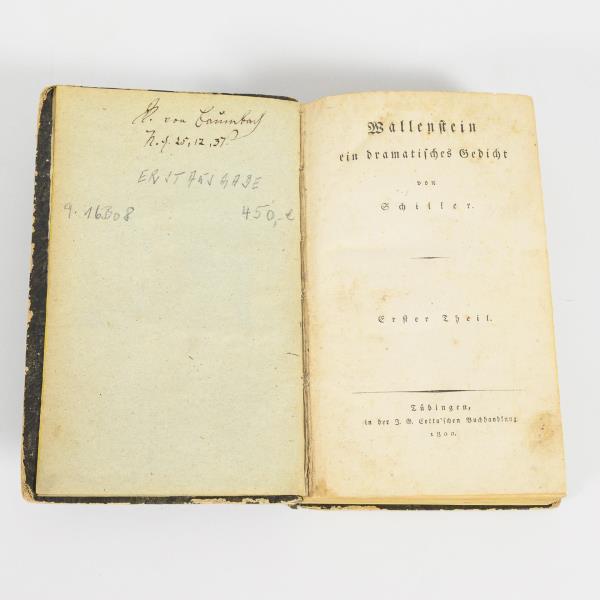 K. von Baumbach
25, 12, 37
ERSTAUSGABE
450,-€
Wallenstein
ein dramatisches Gedicht
von
Schiller.
Erster Theil.
Tübingen,
in der J. G. Cotta'schen Buchhandlung
1800.